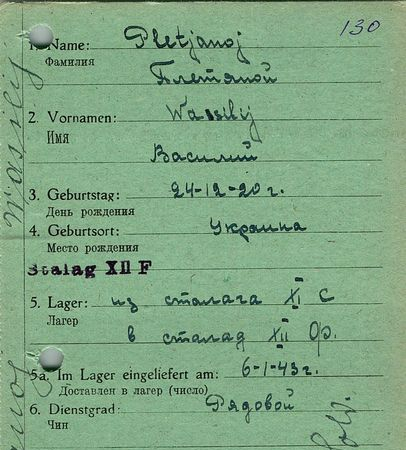 130
1. Name: Pletjanoj
Фамилия
Блетяной
2. Vornamen: Wassilij
Имя
Василий
3. Geburtstag: 24-12-20 г.
День рождения
4. Geburtsort: Украина
Место рождения
Stalag XII F
5. Lager: из сталага XI C
Лагер
в сталаг XII Ф.
5a. Im Lager eingeliefert am: 6-1-43 г.
Доставлен в лагер (число)
6. Dienstgrad: Рядовой
Чин
Sold.
Wassilij